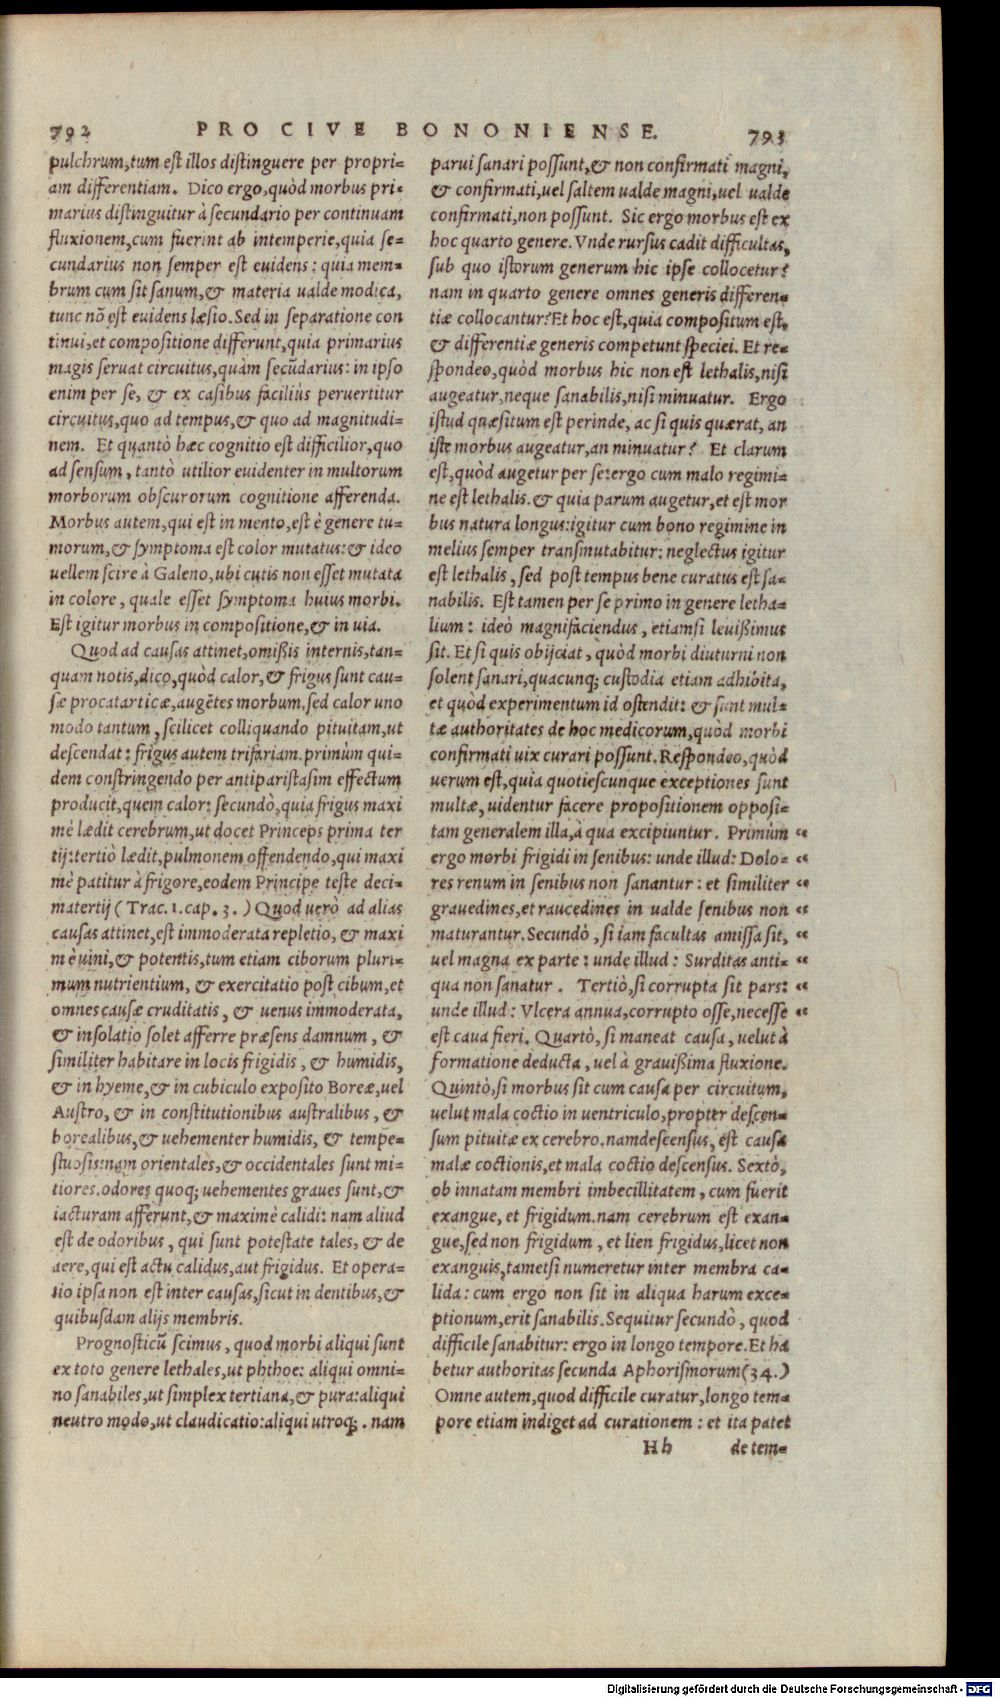 792 PRO CIVE BONONIENSE. 793
pulchrum, tum est illos distinguere per propri-
am differentiam. Dico ergo, quòd morbus pri-
marius distinguitur à secundario per continuam
fluxionem, cum fuerint ab intemperie, quia se-
cundarius non semper est euidens: quia mem-
brum cum sit sanum, & materia valde modica,
tunc nō est euidens læsio. Sed in separatione con
tinui, et compositione differunt, quia primarius
magis seruat circuitus, quàm secūdarius: in ipso
enim per se, & ex casibus faciliùs peruertitur
circuitus, quo ad tempus, & quo ad magnitudi-
nem. Et quantò hæc cognitio est difficilior, quo
ad sensum, tantò utilior euidenter in multorum
morborum obscurorum cognitione afferenda.
Morbus autem, qui est in mento, est è genere tu-
morum, & symptoma est color mutatus: & ideo
uellem scire à Galeno, ubi cutis non esset mutata
in colore, quale esset symptoma huius morbi.
Est igitur morbus in compositione, & in uia.
Quod ad causas attinet, omißis internis, tan-
quam notis, dico, quòd calor, & frigus sunt cau-
sæ procatarticæ, augētes morbum. sed calor uno
modo tantum, scilicet colliquando pituitam, ut
descendat: frigus autem trifariam. primùm qui-
dem constringendo per antiparistasim effectum
producit, quem calor: secundò, quia frigus maxi
mè lædit cerebrum, ut docet Princeps prima ter
tij: tertiò lædit, pulmonem offendendo, qui maxi
mè patitur à frigore, eodem Principe teste deci-
matertij (Trac. 1. cap. 3.) Quod uerò ad alias
causas attinet, est immoderata repletio, & maxi
mè uini, & potentis, tum etiam ciborum pluri-
mum nutrientium, & exercitatio post cibum, et
omnes causæ cruditatis, & uenus immoderata,
& insolatio solet afferre præsens damnum, &
similiter habitare in locis frigidis, & humidis,
& in hyeme, & in cubiculo exposito Boreæ, uel
Austro, & in constitutionibus australibus, &
borealibus, & uehementer humidis, & tempe-
stuosis: nam orientales, & occidentales sunt mi-
tiores. odores quoq; uehementes graues sunt, &
iacturam afferunt, & maximè calidi: nam aliud
est de odoribus, qui sunt potestate tales, & de
aere, qui est actu calidus, aut frigidus. Et opera-
tio ipsa non est inter causas, sicut in dentibus, &
quibusdam alijs membris.
Prognosticū scimus, quod morbi aliqui sunt
ex toto genere lethales, ut phthoe: aliqui omni-
no sanabiles, ut simplex tertiana, & pura: aliqui
neutro modo, ut claudicatio: aliqui utroq;. nam
parui sanari possunt, & non confirmati magni,
& confirmati, uel saltem ualde magni, uel ualde
confirmati, non possunt. Sic ergo morbus est ex
hoc quarto genere. Vnde rursus cadit difficultas,
sub quo istorum generum hic ipse collocetur?
nam in quarto genere omnes generis differen-
tiæ collocantur? Et hoc est, quia compositum est,
& differentiæ generis competunt speciei. Et re-
spondeo, quòd morbus hic non est lethalis, nisi
augeatur, neque sanabilis, nisi minuatur. Ergo
istud quæsitum est perinde, ac si quis quærat, an
iste morbus augeatur, an minuatur? Et clarum
est, quòd augetur per se: ergo cum malo regimi-
ne est lethalis. & quia parum augetur, et est mor
bus natura longus: igitur cum bono regimine in
melius semper transmutabitur: neglectus igitur
est lethalis, sed post tempus bene curatus est sa-
nabilis. Est tamen per se primo in genere letha-
lium: ideò magnifaciendus, etiamsi leuißimus
sit. Et si quis obijciat, quòd morbi diuturni non
solent sanari, quacunq; custodia etiam adhibita,
et quòd experimentum id ostendit: & sunt mul-
tæ authoritates de hoc medicorum, quòd morbi
confirmati uix curari possunt. Respondeo, quòd
uerum est, quia quotiescunque exceptiones sunt
multæ, uidentur facere propositionem opposi-
tam generalem illa, à qua excipiuntur. Primùm “
ergo morbi frigidi in senibus: unde illud: Dolo- “
res renum in senibus non sanantur: et similiter “
grauedines, et raucedines in ualde senibus non “
maturantur. Secundò, si iam facultas amissa sit, “
uel magna ex parte: unde illud: Surditas anti- “
qua non sanatur. Tertiò, si corrupta sit pars: “
unde illud: Vlcera annua, corrupto osse, necesse “
est caua fieri. Quartò, si maneat causa, uelut à
formatione deducta, uel à grauißima fluxione.
Quintò, si morbus sit cum causa per circuitum,
uelut mala coctio in uentriculo, propter descen-
sum pituitæ ex cerebro. nam descensus, est causa
malæ coctionis, et mala coctio descensus. Sextò,
ob innatam membri imbecillitatem, cum fuerit
exangue, et frigidum. nam cerebrum est exan-
gue, sed non frigidum, et lien frigidus, licet non
exanguis, tametsi numeretur inter membra ca-
lida: cum ergo non sit in aliqua harum exce-
ptionum, erit sanabilis. Sequitur secundò, quod
difficile sanabitur: ergo in longo tempore. Et ha
betur authoritas secunda Aphorismorum (34.)
Omne autem, quod difficile curatur, longo tem-
pore etiam indiget ad curationem: et ita patet
Hh de tem-
Digitalisierung gefördert durch die Deutsche Forschungsgemeinschaft - DFG